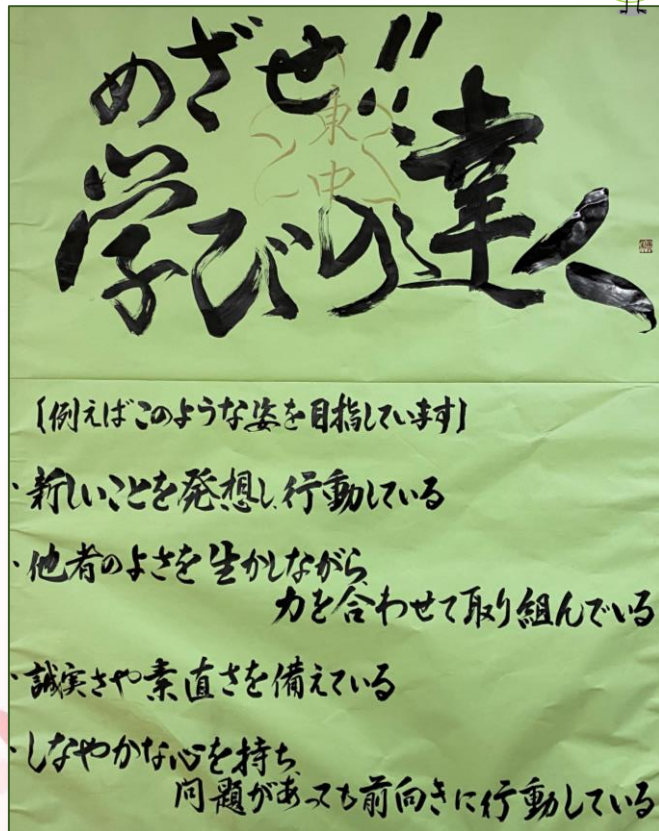 めざせ!!
東
中
学びの達人
〔例えばこのような姿を目指しています〕
・新しいことを発想し、行動している
・他者のよさを生かしながら、
力を合わせて取り組んでいる
・誠実さや素直さを備えている
・しなやかな心を持ち、
問題があっても前向きに行動している